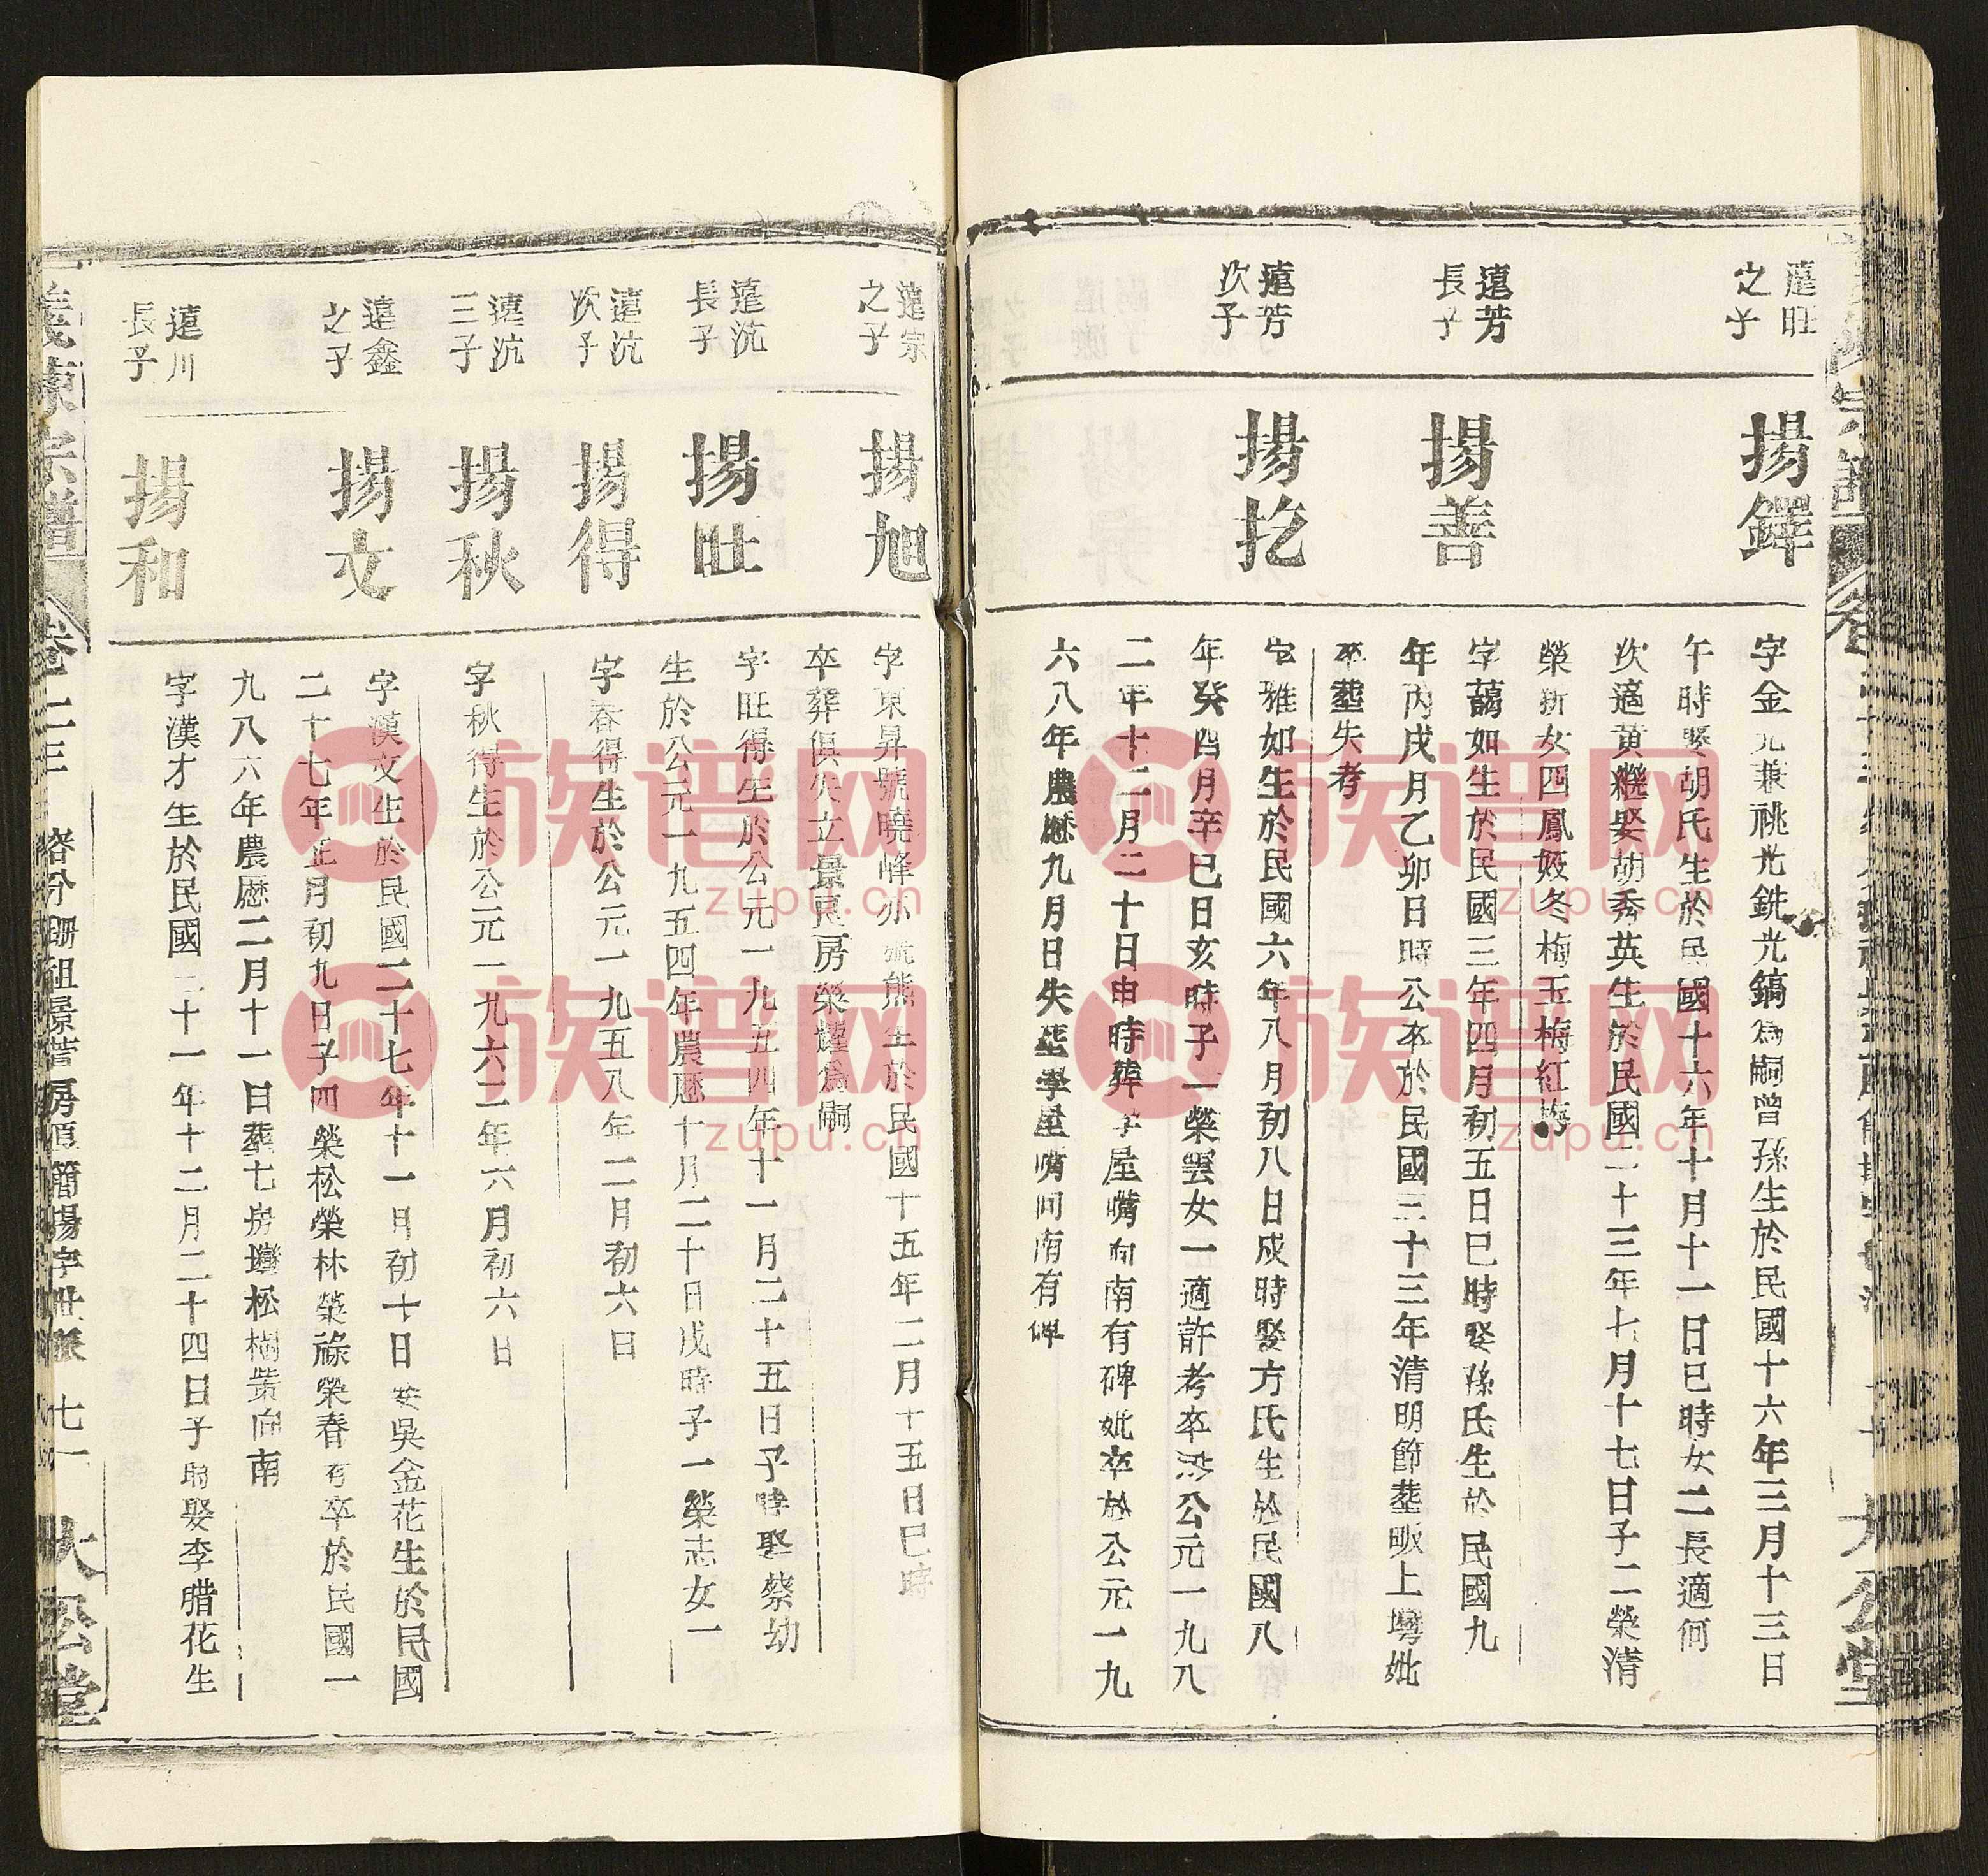 遠旺
之子
揚鐸
字金元兼祧光銑光鎬為嗣曾孫生於民國十六年三月十三日
午時娶胡氏生於民國十六年十月十一日巳時女二長適何
次適黄繼娶胡秀英生於民國二十三年七月十七日子二榮清
榮新女四鳳姣冬梅玉梅紅梅
遠芳
長子
揚善
字藹如生於民國三年四月初五日巳時娶孫氏生於民國九
年丙戌月乙卯日時公卒於民國三十三年清明節塟畈上塆妣
卒塟失考
遠芳
次子
揚扢
字雅如生於民國六年八月初八日戌時娶方氏生於民國八
年癸酉月辛巳日亥時子一榮罷女一適許考卒於公元一九八
二年十二月二十日申時葬學屋嘴向南有碑妣卒於公元一九
六八年農歷九月日失塟學屋嘴向南有碑
遠宗
之子
揚旭
字東昇號曉峰亦號熊生於民國十五年二月十五日巳時
卒葬俱失立景東房榮耀為嗣
遠沆
長子
揚旺
字旺得生於公元一九五四年十一月二十五日子時娶蔡幼
生於公元一九五四年農歷十月二十日戊時子一榮志女一
遠沆
次子
揚得
字春得生於公元一九五八年二月初六日
遠沆
三子
揚秋
字秋得生於公元一九六二年六月初六日
遠鑫
之子
揚文
字漢文生於民國二十七年十一月初十日娶吳金花生於民國
二十七年正月初九日子四榮松榮林榮祿榮春 卒於民國一
九八六年農歷二月十一日塟七房塆松樹 向南
遠川
長子
揚和
字漢才生於民國二十一年十二月二十四日子時娶李腊花生
義陳宗譜
卷二三
景萱房 簡揚字世派
七一
大公堂
大公堂
族谱网
zupu.cn
族谱网
zupu.cn
族谱网
zupu.cn
族谱网
zupu.cn